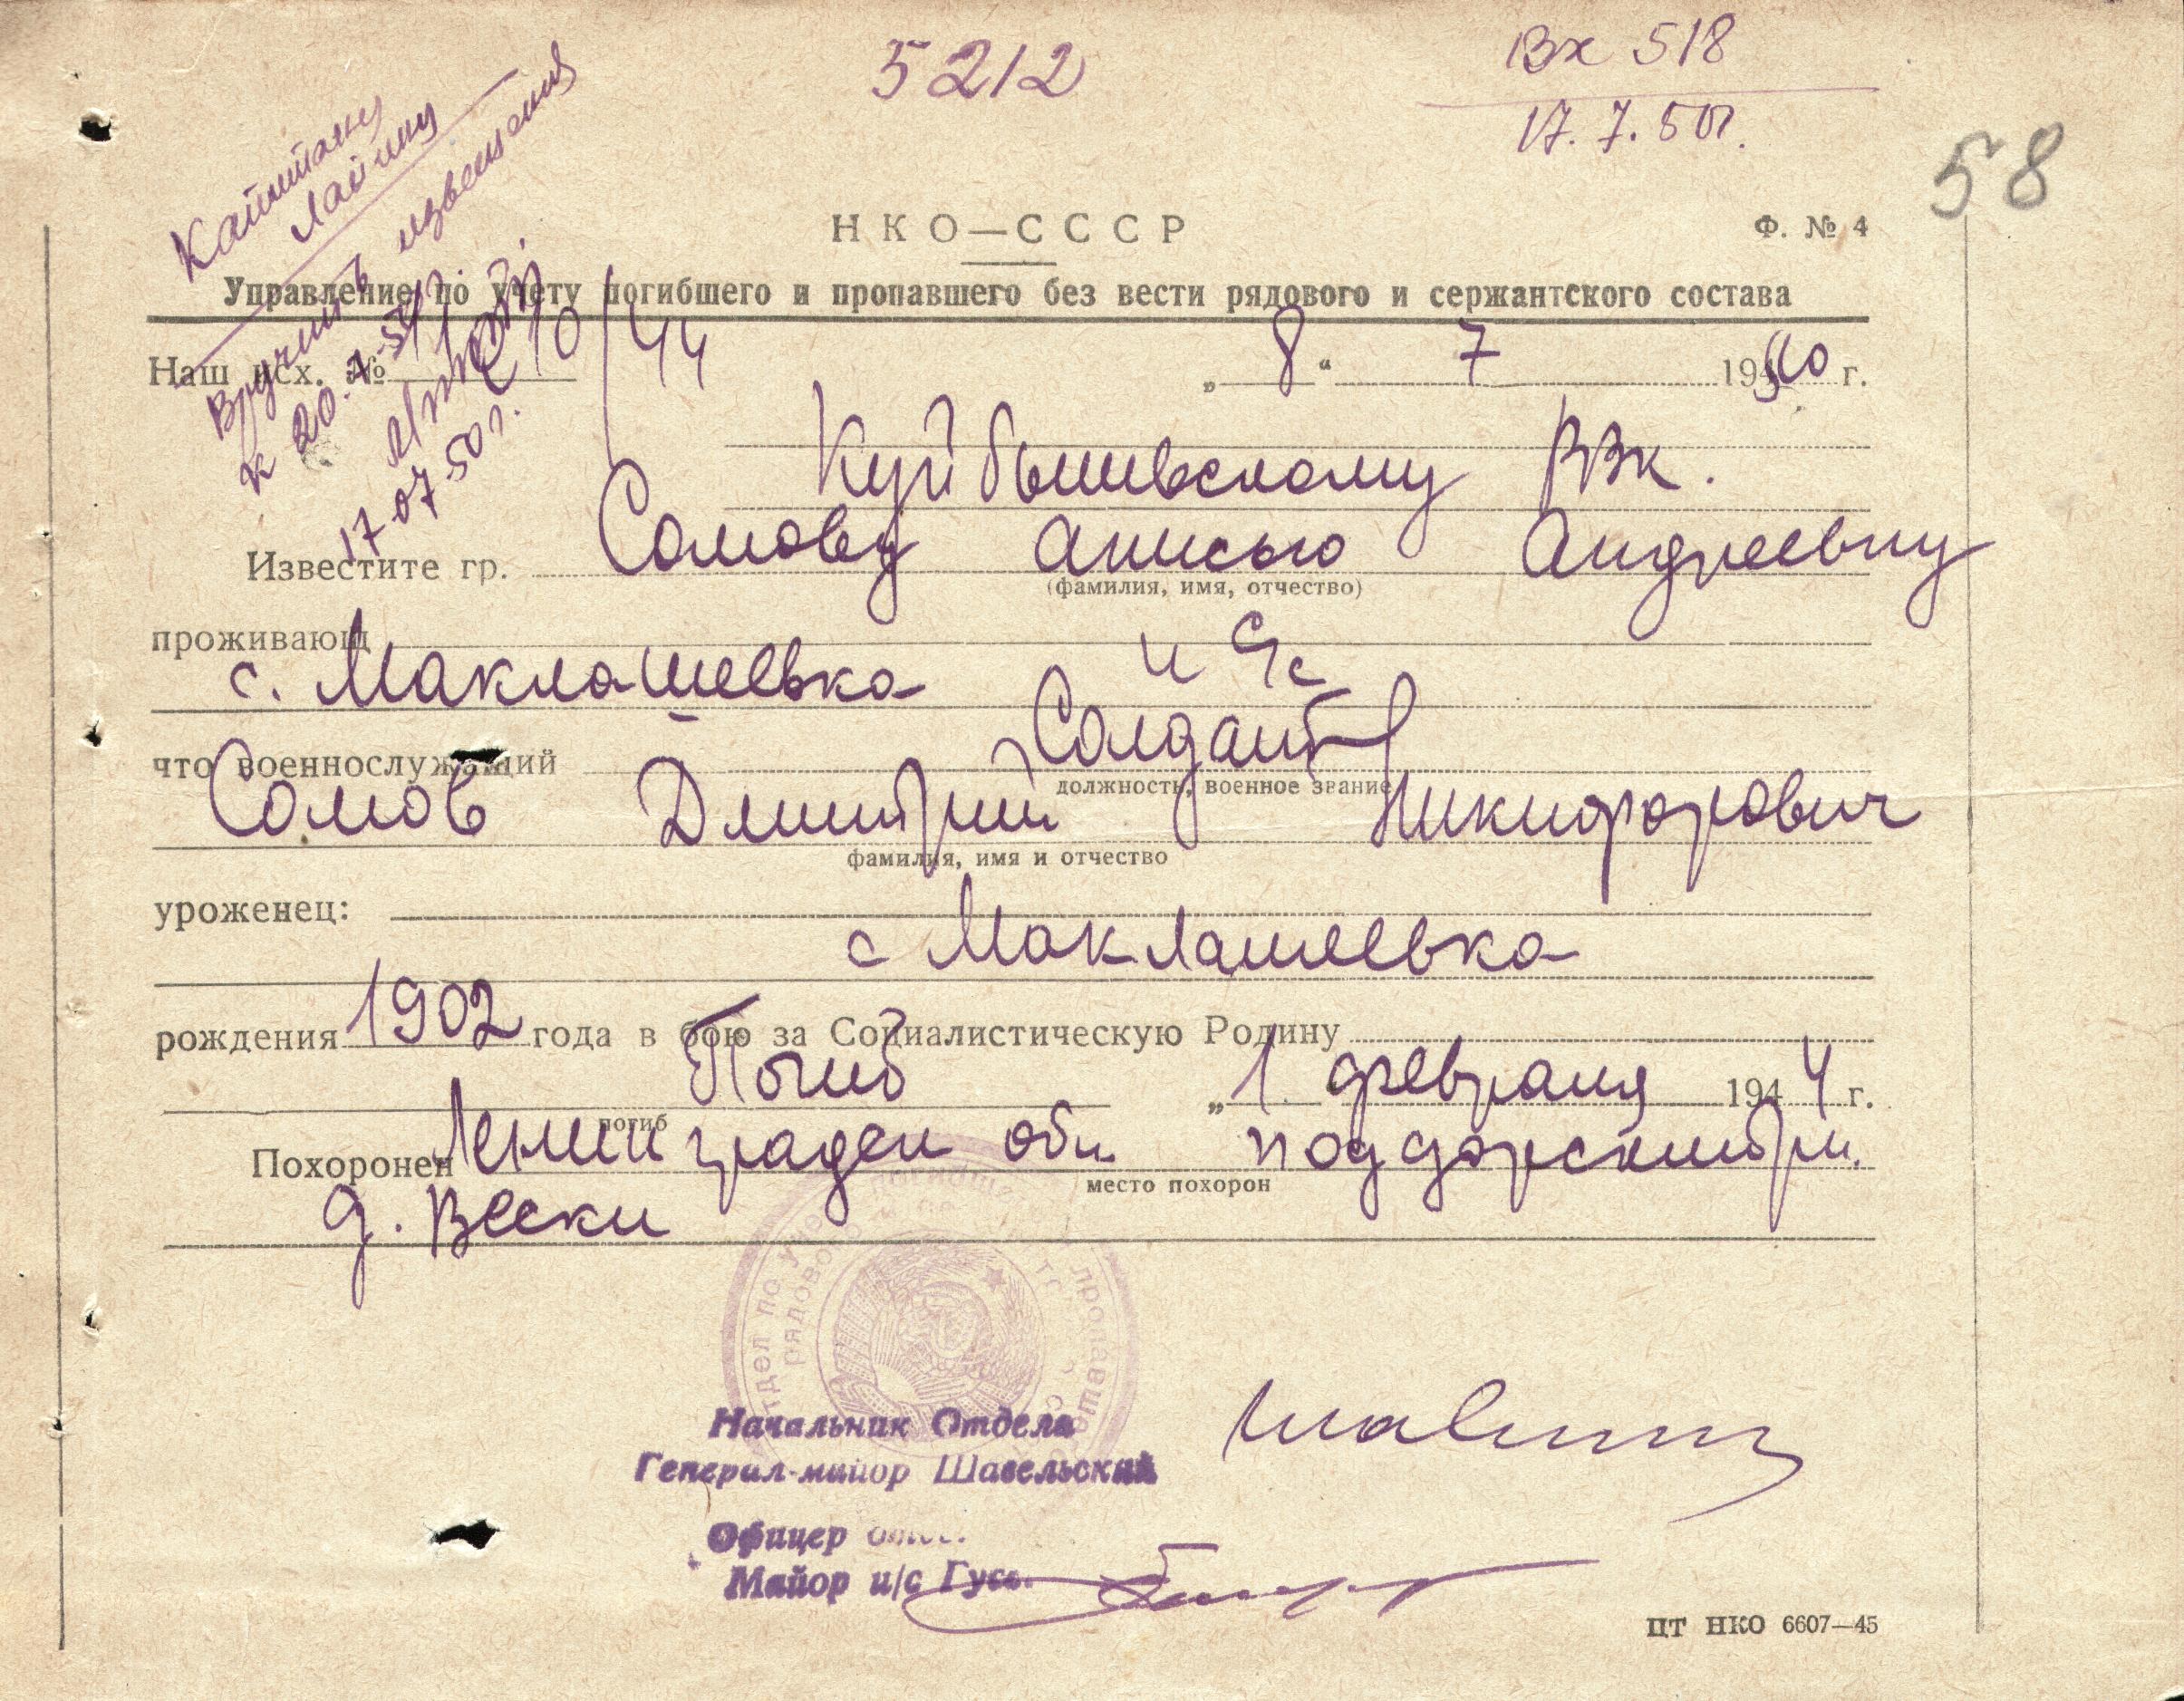 5212
Вх 518
17.7.50г.
58
Капитану
Лапину
Вручить извещения
к 20.7.50г.
17.07.50г.
НКО—СССР
Ф. № 4
Управление по учету погибшего и пропавшего без вести рядового и сержантского состава
Наш исх. № 10/44 „8“ 7 1950 г.
Куйбышевскому РВК.
Известите гр. Сомову Анисью Андреевну
(фамилия, имя, отчество)
проживающ
с. Маклашевка
что военнослужащий Солдат
должность, военное звание
Сомов Дмитрий Никифорович
фамилия, имя и отчество
уроженец:
с Маклашеевка
рождения 1902 года в бою за Социалистическую Родину
Погиб „1 февраля 1944 г.
погиб
Похоронен Ленинградск обл. Поддорский р-н.
место похорон
д. Вески
Начальник Отдела
Генерал-майор Шавельский
Офицер
Майор и/с
ЦТ НКО 6607—45